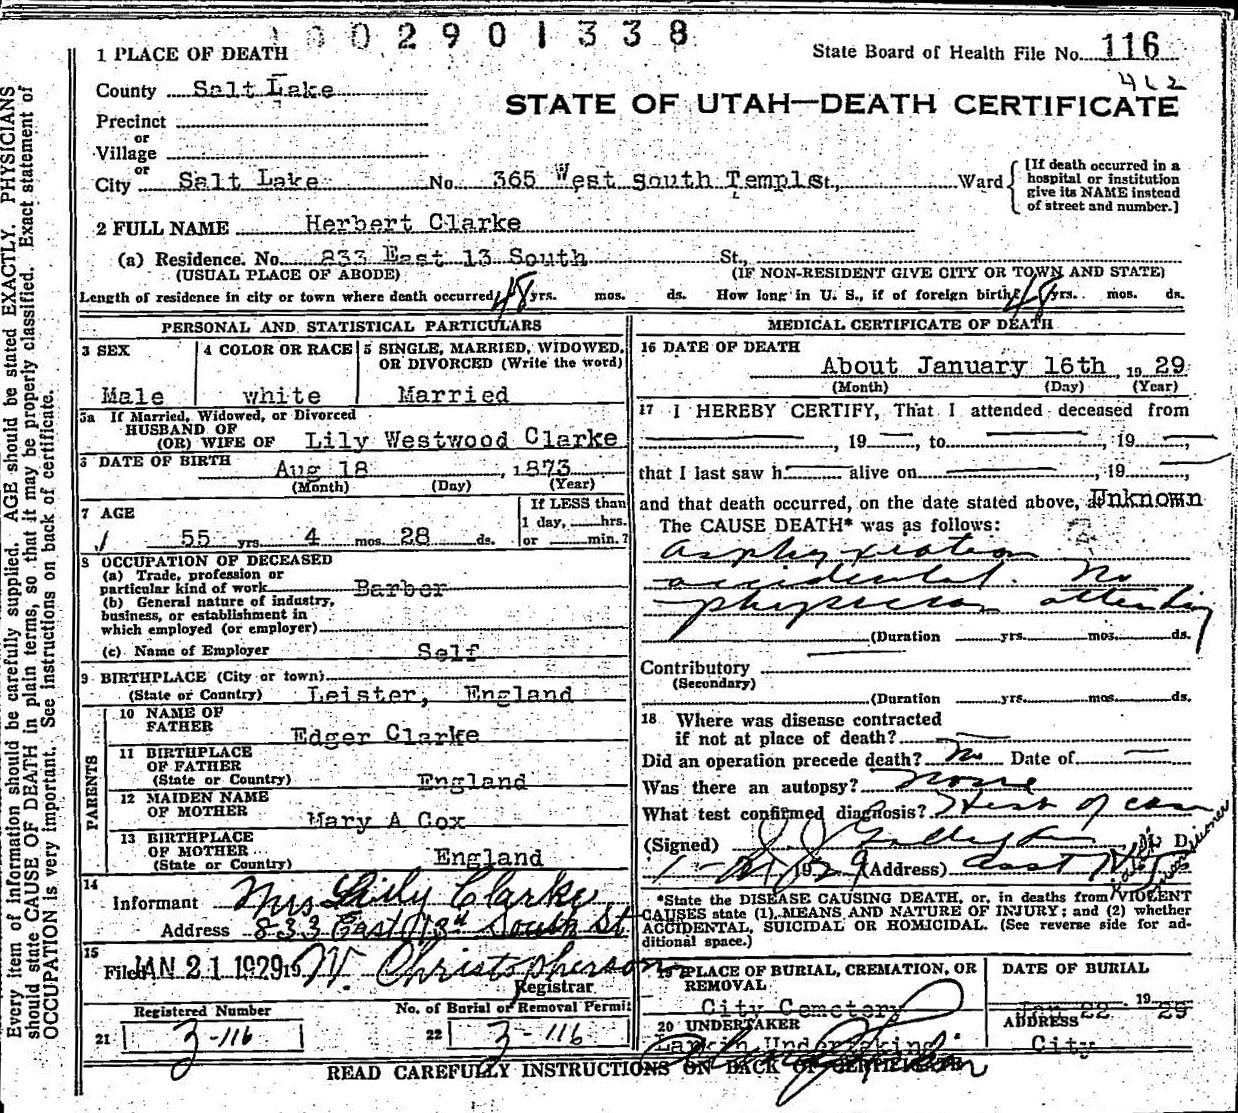 002901338
State Board of Health File No. 116
1 PLACE OF DEATH
County Salt Lake
STATE OF UTAH—DEATH CERTIFICATE
Precinct
or
Village
or
City Salt Lake No. 365 West south Temple St., Ward
[If death occurred in a
hospital or institution
give its NAME instead
of street and number.]
2 FULL NAME Herbert Clarke
(a) Residence. No. 833 East 13 South St.,
(USUAL PLACE OF ABODE) (IF NON-RESIDENT GIVE CITY OR TOWN AND STATE)
Length of residence in city or town where death occurred 48 yrs. mos. ds. How long in U. S., if of foreign birth? 48 yrs. mos. ds.
PERSONAL AND STATISTICAL PARTICULARS
3 SEX
Male
4 COLOR OR RACE
white
5 SINGLE, MARRIED, WIDOWED,
OR DIVORCED (Write the word)
Married
5a If Married, Widowed, or Divorced
HUSBAND OF
(OR) WIFE OF Lily Westwood Clarke
6 DATE OF BIRTH Aug 18, 1873
(Month) (Day) (Year)
7 AGE
55 yrs. 4 mos. 28 ds.
If LESS than
1 day, hrs.
or min.?
8 OCCUPATION OF DECEASED
(a) Trade, profession or
particular kind of work Barber
(b) General nature of industry,
business, or establishment in
which employed (or employer)
(c) Name of Employer Self
9 BIRTHPLACE (City or town)
(State or Country) Leister, England
PARENTS
10 NAME OF
FATHER Edger Clarke
11 BIRTHPLACE
OF FATHER
(State or Country) England
12 MAIDEN NAME
OF MOTHER Mary A Cox
13 BIRTHPLACE
OF MOTHER
(State or Country) England
14
Informant Mrs Lily Clarke
Address 833 East 13th South St
15
Filed JAN 21 1929 19 W. Christopherson
Registrar
Registered Number
21 3-116
No. of Burial or Removal Permit
22 3-116
MEDICAL CERTIFICATE OF DEATH
16 DATE OF DEATH
About January 16th, 19 29
(Month) (Day) (Year)
17 I HEREBY CERTIFY, That I attended deceased from
, 19 , to , 19 ,
that I last saw h alive on , 19 ,
and that death occurred, on the date stated above, at Unknown
The CAUSE DEATH* was as follows:
asphyxiation
accidental. No
physician attending
(Duration yrs. mos. ds.
Contributory
(Secondary)
(Duration yrs. mos. ds.
18 Where was disease contracted
if not at place of death?
Did an operation precede death? No Date of
Was there an autopsy? None
What test confirmed diagnosis? Hist of case
(Signed) M. D.
1-21, 1929 (Address)
*State the DISEASE CAUSING DEATH, or, in deaths from VIOLENT
CAUSES state (1) MEANS AND NATURE OF INJURY; and (2) whether
ACCIDENTAL, SUICIDAL OR HOMICIDAL. (See reverse side for ad-
ditional space.)
19 PLACE OF BURIAL, CREMATION, OR
REMOVAL
City Cemetery
DATE OF BURIAL
Jan 22 19 29
20 UNDERTAKER
Larkin Undertaking
ADDRESS
City
READ CAREFULLY INSTRUCTIONS ON BACK OF CERTIFICATE
Every item of information should be carefully supplied. AGE should be stated EXACTLY. PHYSICIANS
should state CAUSE OF DEATH in plain terms, so that it may be properly classified. Exact statement of
OCCUPATION is very important. See instructions on back of certificate.